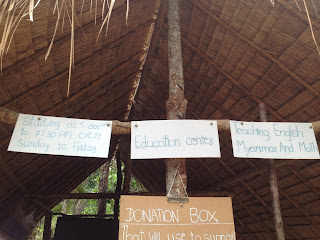 Studying at 5:00PM
to 7:30 PM every
Sunday to Friday.
Education center
Teaching English
Myanmar And Math
DONATION BOX
That will use to support